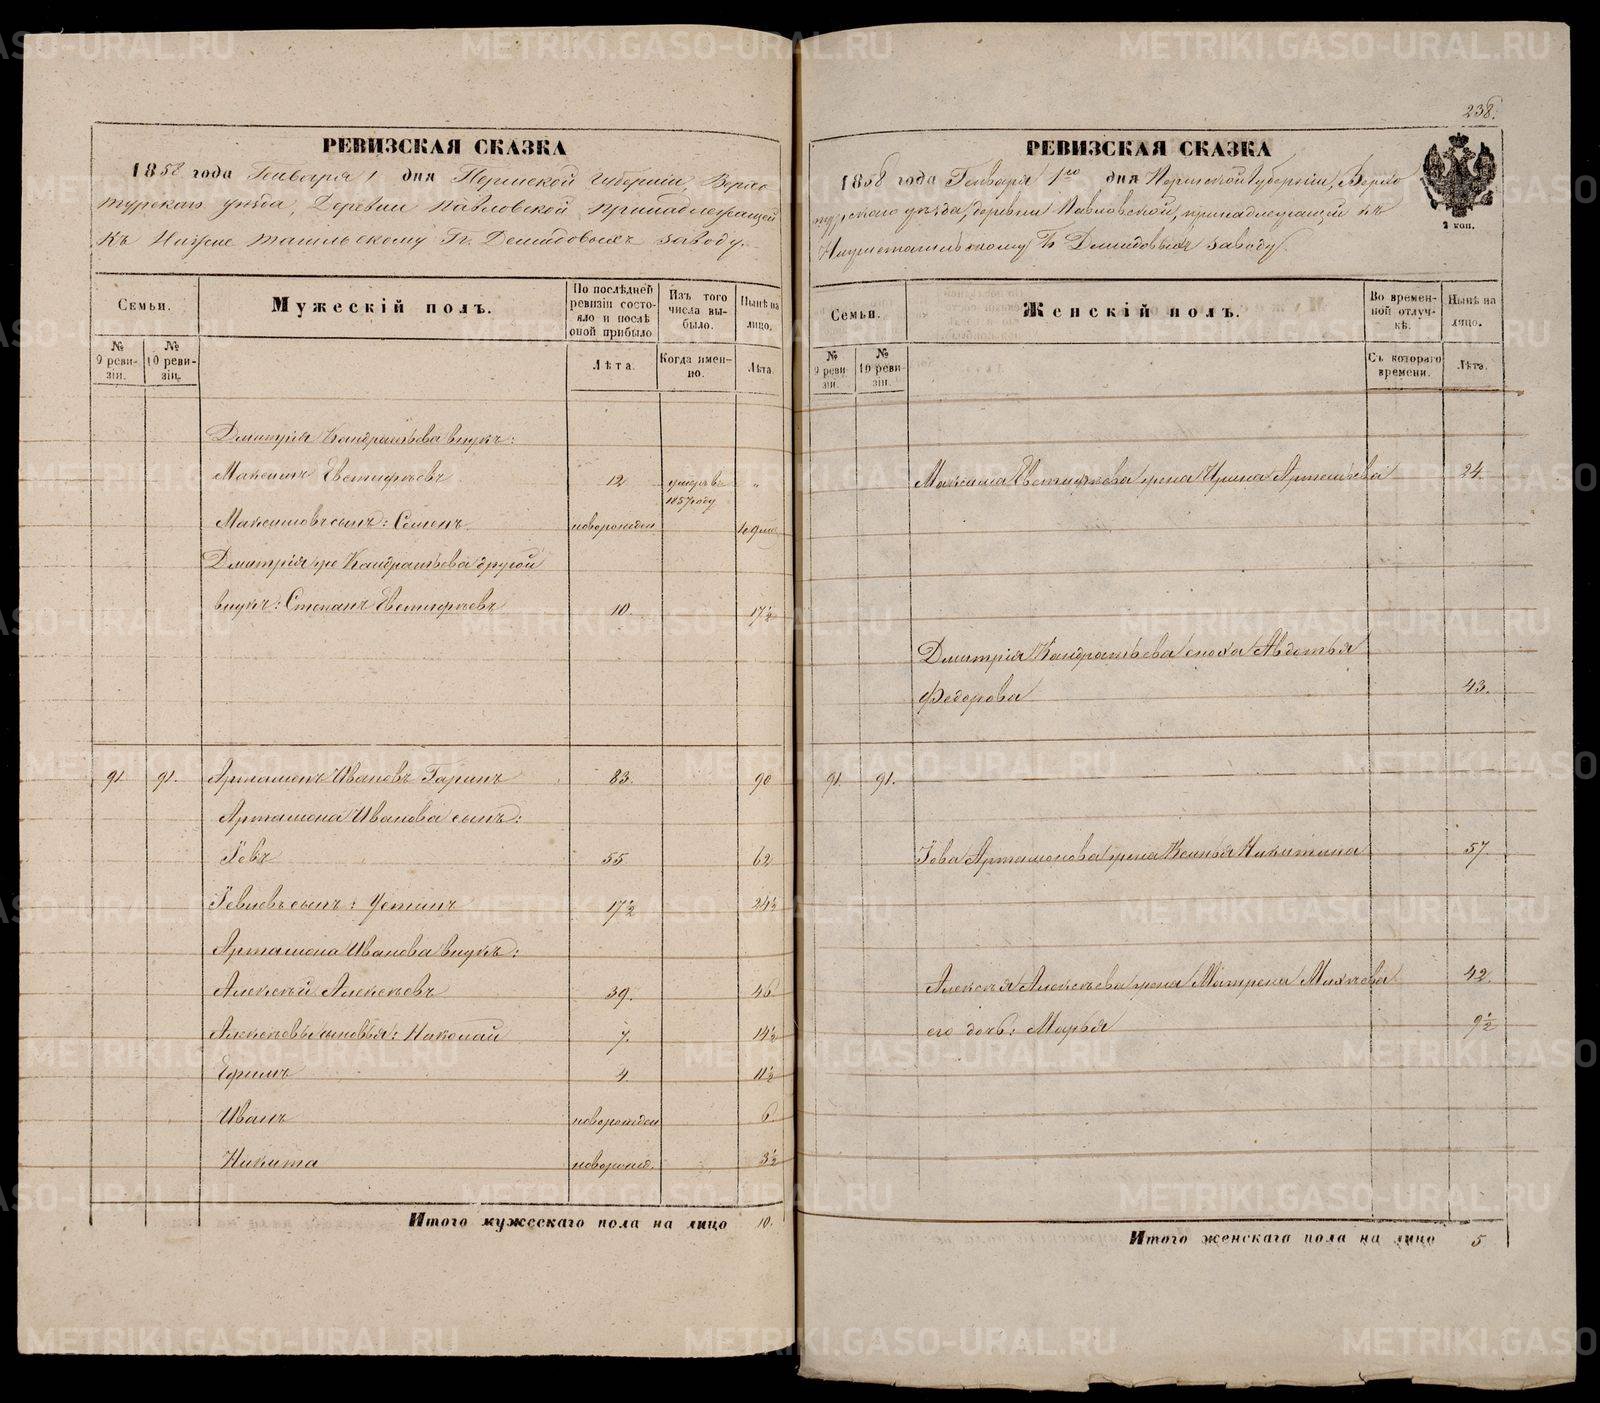 РЕВИЗСКАЯ СКАЗКА
1858 года Генваря 1 дня Пермской губернiи, Верхо
турскаго уѣзда, Деревни Павловской, принадлежащей
къ Нижне тагильскому Гг. Демидовыхъ заводу.
Семьи.
Мужескiй полъ.
По послѣдней ревизiи состояло и послѣ оной прибыло
Изъ того числа выбыло.
Нынѣ на лицо.
№ 9 ревизiи.
№ 10 ревизiи.
Лѣта.
Когда именно.
Лѣта.
Дмитрiя Кандратьева внукъ:
Максимъ Евстифѣевъ 12 умеръ въ 1857 году "
Максимовъ сынъ: Семенъ новорожден
Дмитрiя же Кандратьева другой
внукъ: Степанъ Евстифѣевъ 10. 17½
91. 91. Артамонъ Ивановъ Гаринъ 83. 90
Артамона Иванова сынъ:
Iевъ 55 62
Iевлевъ сынъ: Устинъ 17½ 24½
Артамона Иванова внукъ:
Алексѣй Алексѣевъ 39. 46.
Алексѣевы сыновья: Николай 7. 14½
Ефимъ 4. 11½
Иванъ новорожден 6.
Никита новорожд. 3½
Итого мужескаго пола на лицо 10.
238.
РЕВИЗСКАЯ СКАЗКА
1858 года Генваря 1го дня Пермской Губернiи, Верхо
турскаго уѣзда, деревни Павловской, принадлежащей къ
Нижнетагильскому Гг Демидовыхъ заводу.
2 коп.
Семьи.
Женскiй полъ.
Во временной отлучкѣ.
Нынѣ на лицо.
№ 9 ревизiи.
№ 10 ревизiи.
Съ котораго времени.
Лѣта.
Максима Евстифѣева жена Ирина Артемьева 24.
Дмитрiя Кандратьева сноха Авдотья
Федорова 43.
91. 91.
Iева Артамонова жена Ксенья Никитина 57.
Алексѣя Алексѣева жена Матрена Михѣева 42.
его дочь: Марья 9½
Итого женскаго пола на лицо 5
METRIKI.GASO-URAL.RU